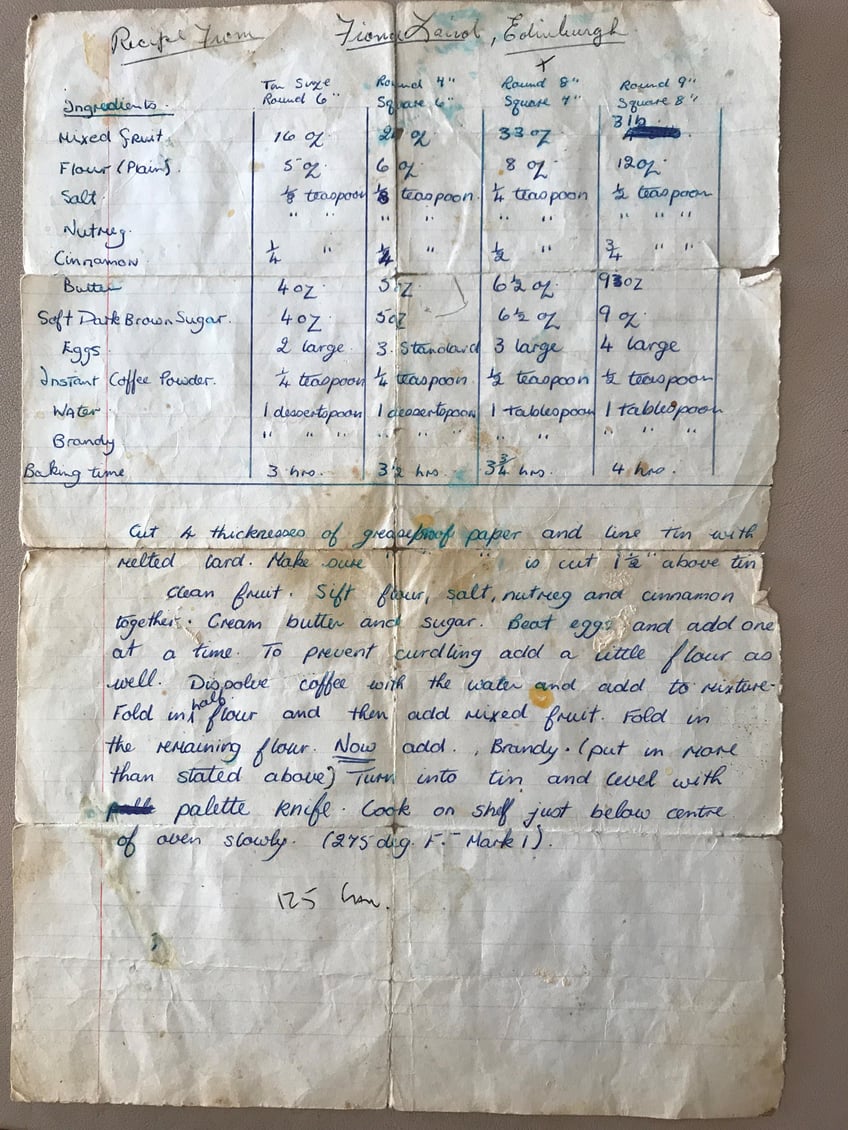 Recipe From Fiona Laird, Edinburgh
x
Tin Size Round 4" Round 8" Round 9"
Ingredients. Round 6" Square 6" Square 7" Square 8"
Mixed fruit. 16 oz oz. 33 oz 3 lb.
Flour (Plain). 5 oz. 6 oz. 8 oz. 12 oz.
Salt. 1/8 teaspoon 1/8 teaspoon. 1/4 teaspoon 1/2 teaspoon
Nutmeg. " " " " " " " " "
Cinnamon 1/4 " 1/4 " 1/2 " 3/4 " "
Butter 4 oz 5 oz 6 1/2 oz. oz
Soft Dark Brown Sugar. 4 oz 5 oz 6 1/2 oz 9 oz.
Eggs 2 large. 3. Standard 3 large 4 large
Instant Coffee Powder. 1/4 teaspoon 1/4 teaspoon. 1/2 teaspoon 1/2 teaspoon
Water 1 dessertspoon 1 dessertspoon 1 tablespoon 1 tablespoon
Brandy " " " " " " " " " " "
Baking time 3 hrs. 3 1/2 hrs. 3 3/4 hrs. 4 hrs.
Cut 4 thicknesses of greaseproof paper and line tin with
melted lard. Make sure " " is cut 1 1/2" above tin
clean fruit. Sift flour, salt, nutmeg and cinnamon
together. Cream butter and sugar. Beat eggs and add one
at a time. To prevent curdling add a little flour as
well. Dissolve coffee with the water and add to mixture.
Fold in half flour and then add mixed fruit. Fold in
the remaining flour. Now add. Brandy. (put in more
than stated above) Turn into tin and level with
palette knife. Cook on shelf just below centre
of oven slowly. (275 deg. F.- Mark 1).
125